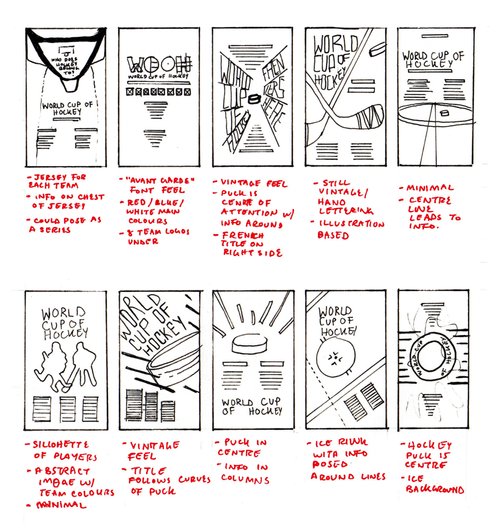 WHO DOES
HOCKEY
BELONG
TO?
WORLD CUP OF
HOCKEY
- JERSEY FOR
EACH TEAM
- INFO ON CHEST
OF JERSEY
- COULD POSE AS
A SERIES
WCOH
WORLD CUP OF HOCKEY
- "AVANT GARDE"
FONT FEEL
- RED/BLUE/
WHITE MAIN
COLOURS
- 8 TEAM LOGOS
UNDER
WORLD
CUP OF
HOCKEY
- VINTAGE FEEL
- PUCK IS
CENTRE OF
ATTENTION W/
INFO AROUND
- FRENCH
TITLE ON
RIGHT SIDE
WORLD
CUP OF
HOCKEY
- STILL
VINTAGE/
HAND
LETTERING
- ILLUSTRATION
BASED
WORLD CUP OF
HOCKEY
- MINIMAL
- CENTRE
LINE
LEADS TO
INFO.
WORLD
CUP OF
HOCKEY
- SILHOUETTE
OF PLAYERS
- ABSTRACT
IMAGE W/
TEAM COLOURS
- MINIMAL
WORLD
CUP OF
HOCKEY
- VINTAGE
FEEL
- TITLE
FOLLOWS CURVES
OF PUCK
WORLD CUP
OF HOCKEY
- PUCK IN
CENTRE
- INFO IN
COLUMNS
WORLD
CUP OF
HOCKEY
- ICE RINK
WITH INFO
POSED
AROUND LINES
WORLD CUP
OF HOCKEY
- HOCKEY
PUCK IS
CENTRE
- ICE
BACKGROUND